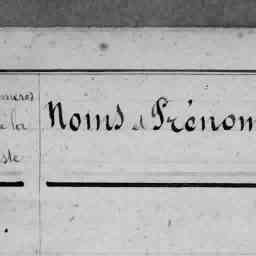 méros
de la
iste
Noms et Prénom